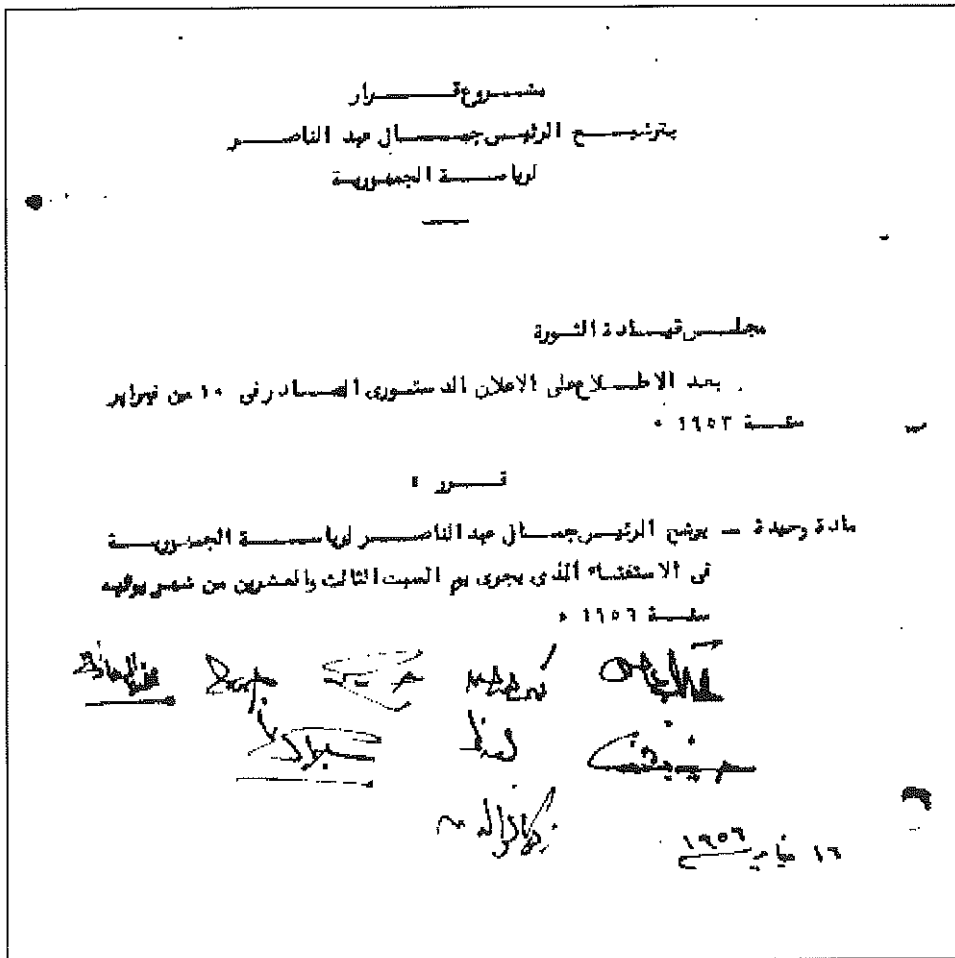 مشروع قرار
بترشيح الرئيس جمال عبد الناصر
لرياسة الجمهورية
مجلس قيادة الثورة
بعد الاطلاع على الاعلان الدستورى الصادر فى ١٠ من فبراير
سنة ١٩٥٣ ٠
قرر :
مادة وحيدة ــ يرشح الرئيس جمال عبد الناصر لرياسة الجمهورية
فى الاستفتاء الذى يجرى يوم السبت الثالث والعشرين من شهر يونيه
سنة ١٩٥٦ ٠
١٦ يناير ١٩٥٦